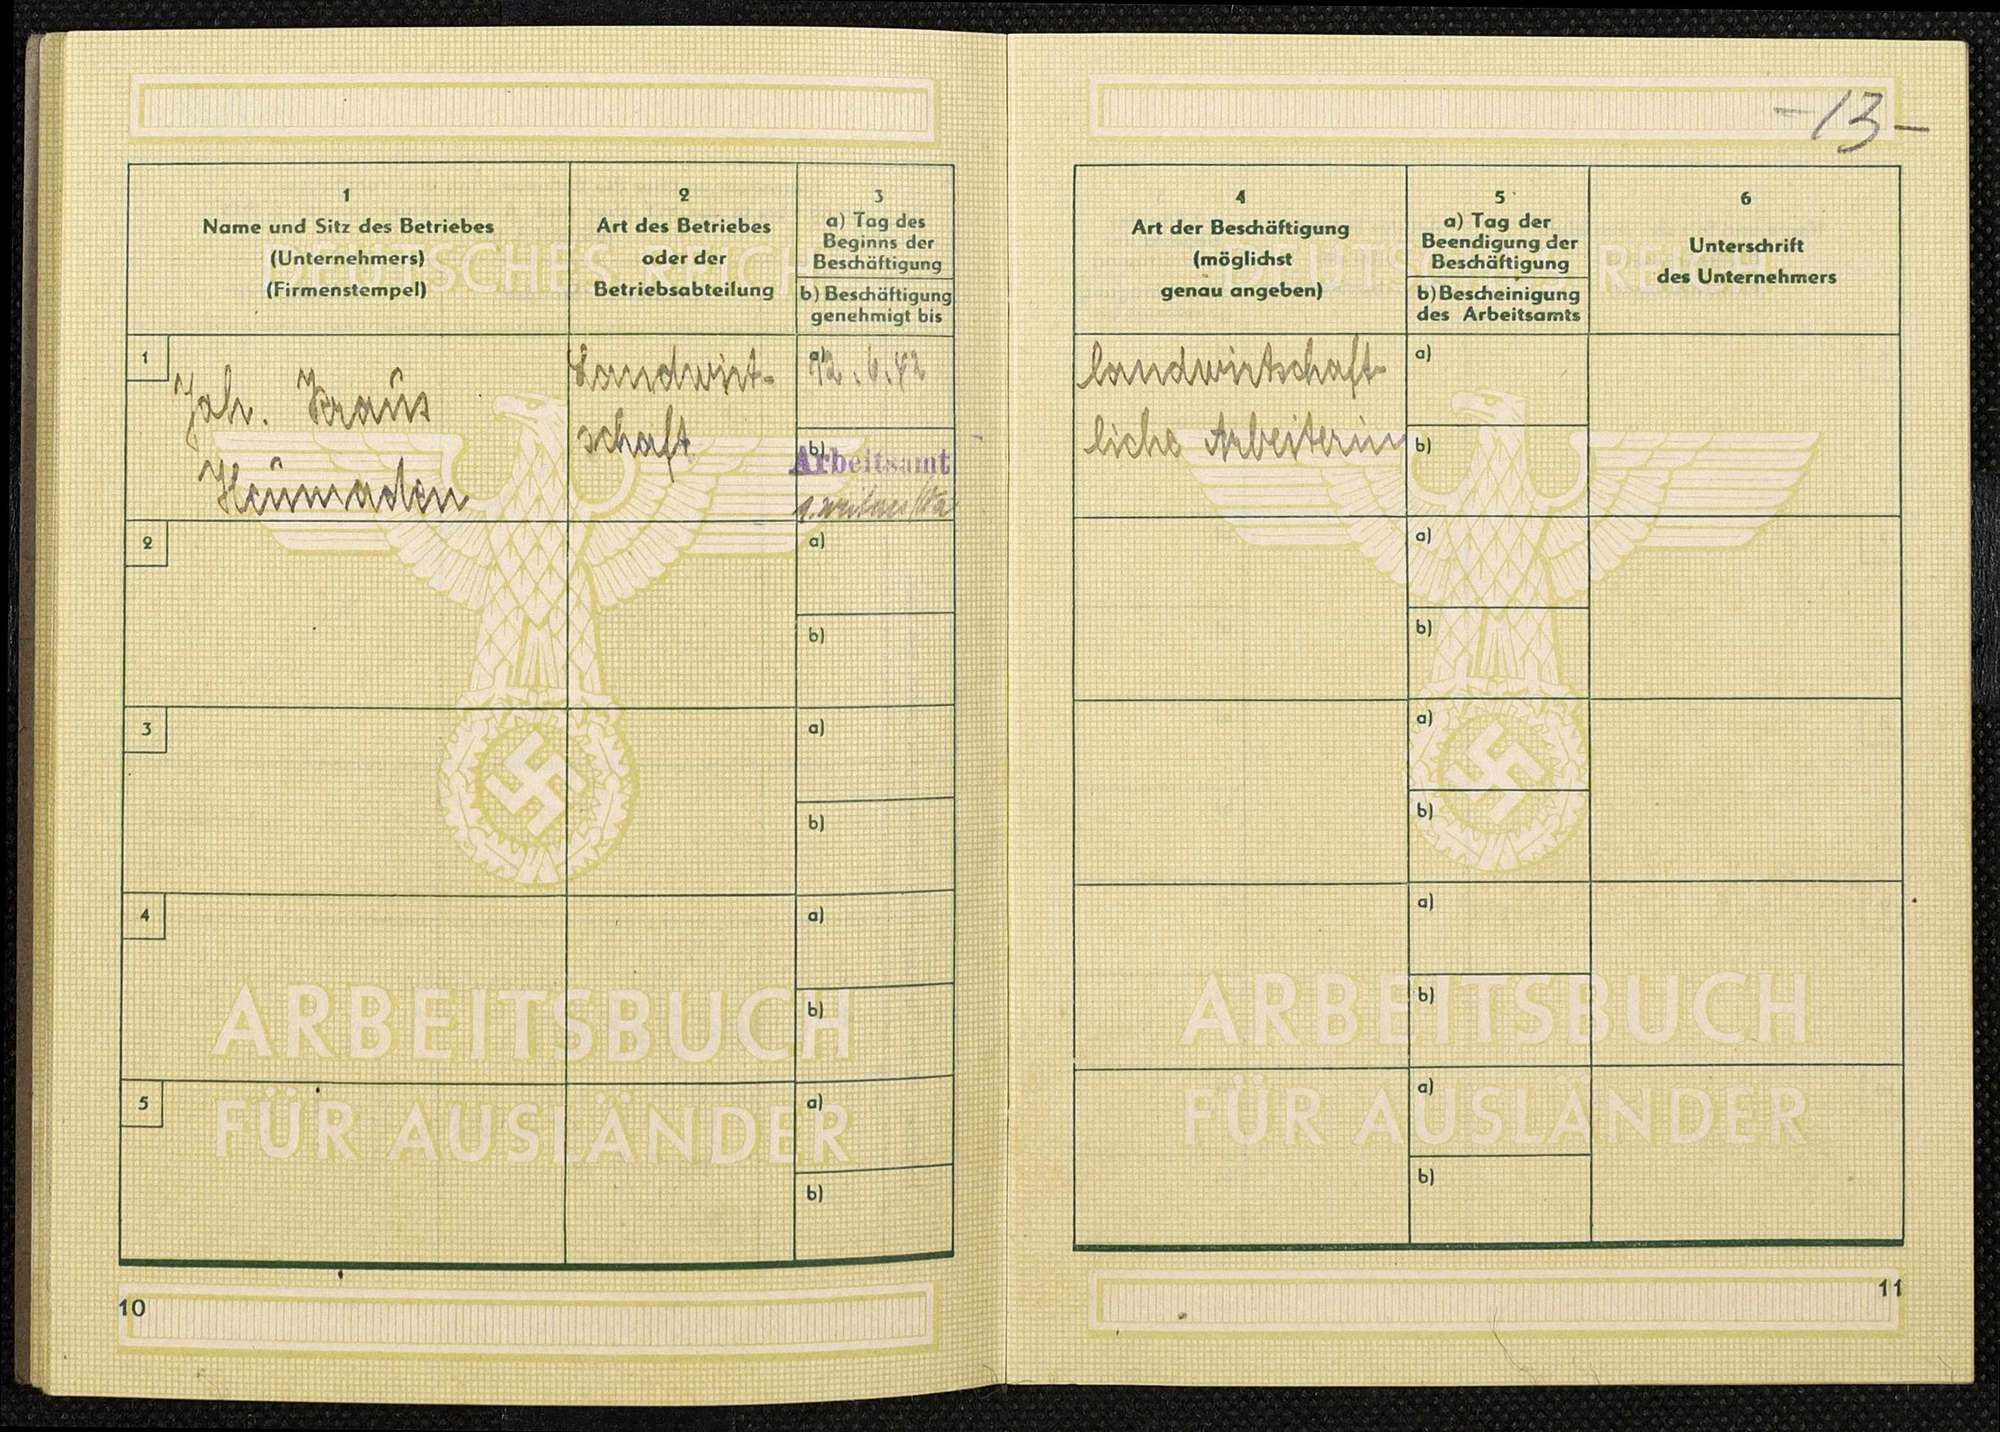 -13-
DEUTSCHES REICH
1
Name und Sitz des Betriebes
(Unternehmers)
(Firmenstempel)
2
Art des Betriebes
oder der
Betriebsabteilung
3
a) Tag des
Beginns der
Beschäftigung
b) Beschäftigung
genehmigt bis
1
Joh. Kraus
Heumaden
Landwirt-
schaft
a)
12.6.42
b)
Arbeitsamt
2
a)
b)
3
a)
b)
4
a)
b)
ARBEITSBUCH
5
a)
FÜR AUSLÄNDER
b)
10
DEUTSCHES REICH
4
Art der Beschäftigung
(möglichst
genau angeben)
5
a) Tag der
Beendigung der
Beschäftigung
b) Bescheinigung
des Arbeitsamts
6
Unterschrift
des Unternehmers
landwirtschaft-
liche Arbeiterin
a)
b)
a)
b)
a)
b)
a)
b)
ARBEITSBUCH
a)
FÜR AUSLÄNDER
b)
11